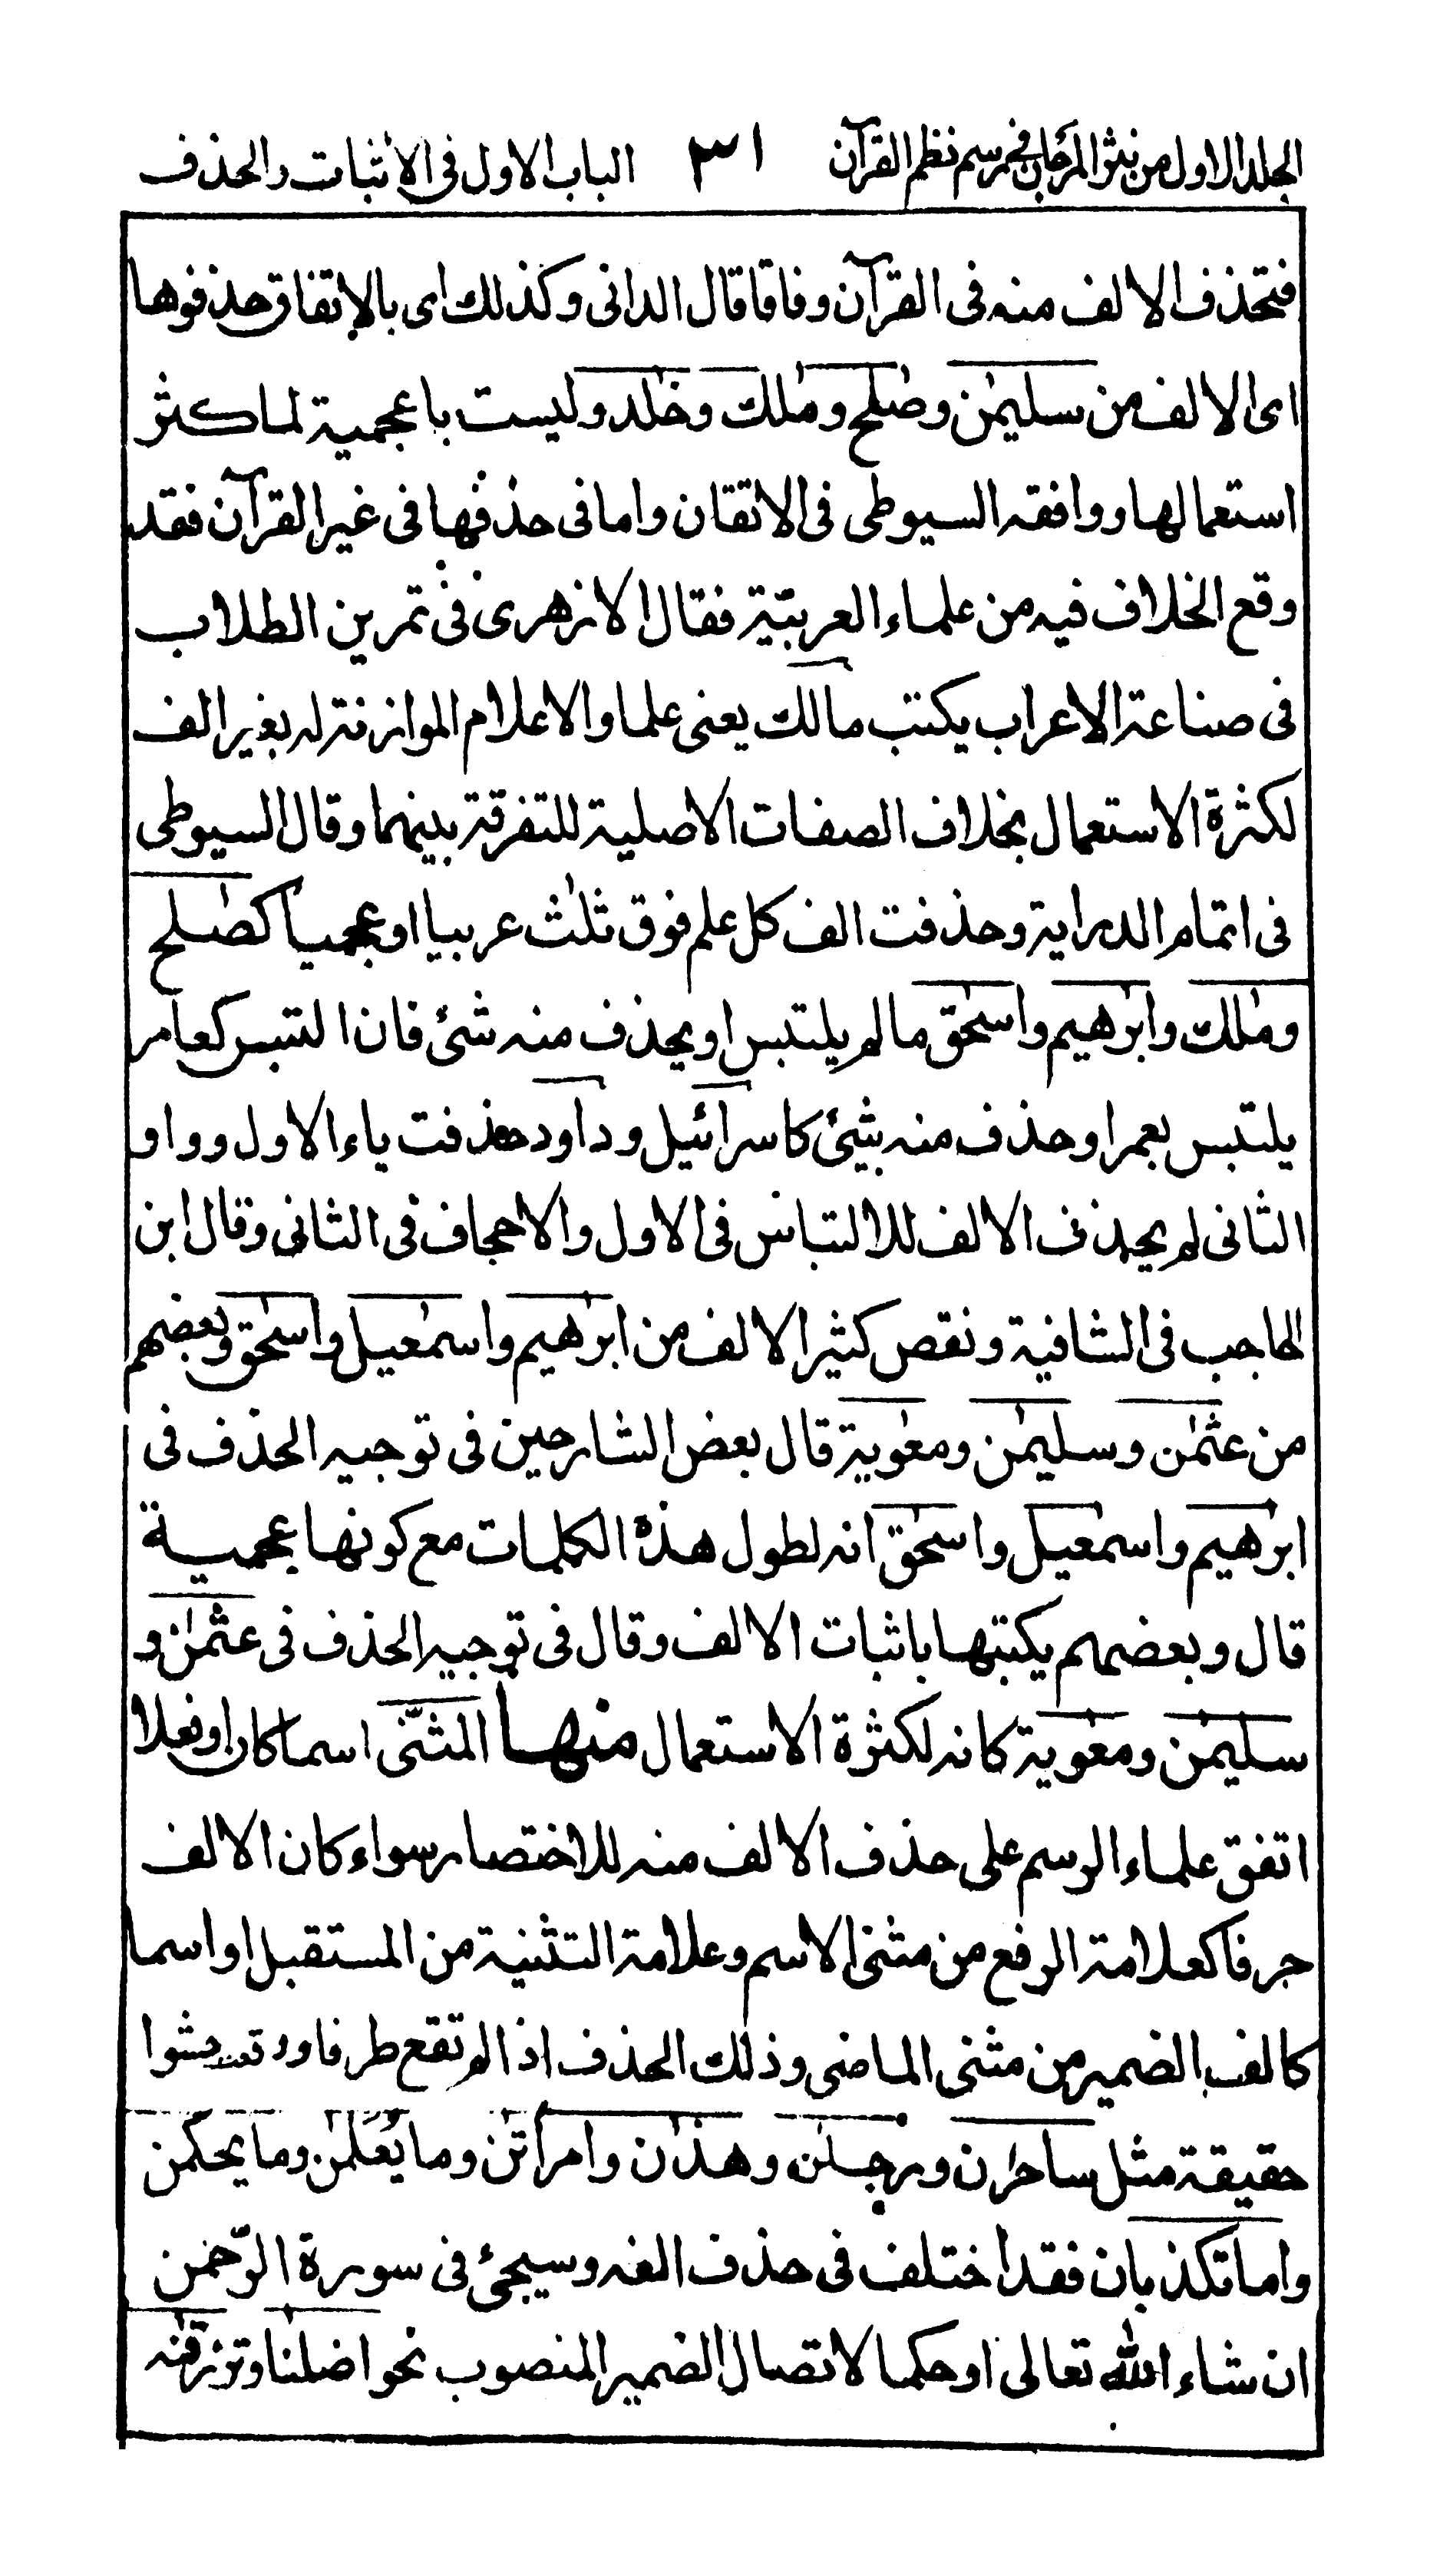 الجلد الاول من نثر المرجان في رسم نظم القرآن ٣١ الباب الاول فى الاثبات والحذف
فتحذف الالف منه فى القرآن وفاقا قال الدانى وكذلك اى بالاتفاق حذفوها
اى الالف من سليمٰن وصٰلح ومٰلك وخٰلد وليست باعجمية لما كثر
استعمالها ووافقه السيوطى فى الاتقان واما فى حذفها فى غير القرآن فقد
وقع الخلاف فيه من علماء العربيّة فقال الازهرى فى تمرين الطلاب
فى صناعة الاعراب يكتب مالك يعنى علما والاعلام الموازنة له بغير الف
لكثرة الاستعمال بخلاف الصفات الاصلية للتفرقة بينهما وقال السيوطى
فى اتمام الدراية وحذفت الف كل علم فوق ثلٰث عربيا او عجميا كصٰلح
ومٰلك وابرٰهيم واسحٰق ما لم يلتبس او يحذف منه شئ فان التبس كعامر
يلتبس بعمر او حذف منه شئ كاسرائيل وداود حذفت ياء الاول وواو
الثانى لم يحذف الالف للالتباس فى الاول والاجحاف فى الثانى وقال ابن
الحاجب فى الشافية ونقص كثير الالف من ابرٰهيم واسمٰعيل واسحٰق وبعضهم
من عثمٰن وسليمٰن ومعٰوية قال بعض الشارحين فى توجيه الحذف فى
ابرٰهيم واسمٰعيل واسحٰق انه لطول هذه الكلمات مع كونها عجمية
قال وبعضهم يكتبها باثبات الالف وقال فى توجيه الحذف فى عثمٰن و
سليمٰن ومعٰوية كانه لكثرة الاستعمال منها المثنّى اسما كان او فعلا
اتفق علماء الرسم على حذف الالف منه للاختصار سواء كان الالف
حرفا كعلامة الرفع من مثنى الاسم وعلامة التثنية من المستقبل او اسما
كالف الضمير من مثنى الماضى وذٰلك الحذف اذا لم تقع طرفا و حشوا
حقيقة مثل ساحرٰن ورجلٰن وهذٰن وامرأتٰن وما يُعَلّمٰن وما يحكمٰن
واما تكذبان فقد اختلف فى حذف الفه وسيجئ فى سورة الرّحمٰن
ان شاء الله تعالى او حكما لاتصال الضمير المنصوب نحو اضلنا وترزقٰنه